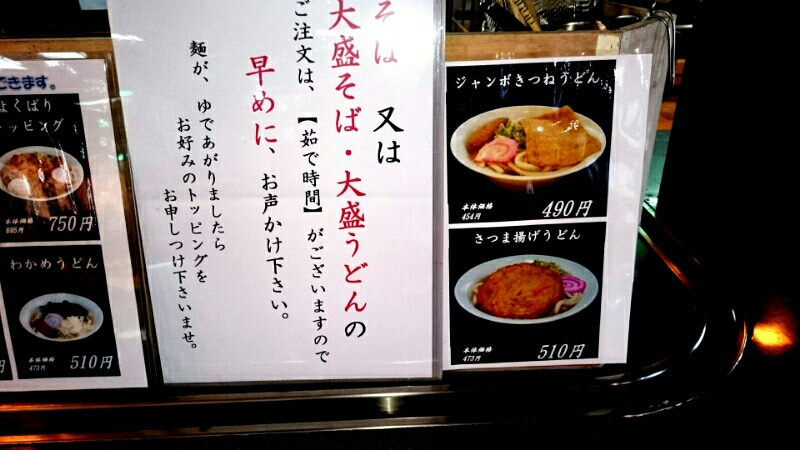 できます。
よくばり
トッピング
本体価格
695円
750円
わかめうどん
本体価格
473円
510円
そば 又は
大盛そば・大盛うどんの
ご注文は、【茹で時間】がございますので
早めに、お声かけ下さい。
麺が、ゆであがりましたら
お好みのトッピングを
お申しつけ下さいませ。
ジャンボきつねうどん
本体価格
454円
490円
さつま揚げうどん
本体価格
473円
510円